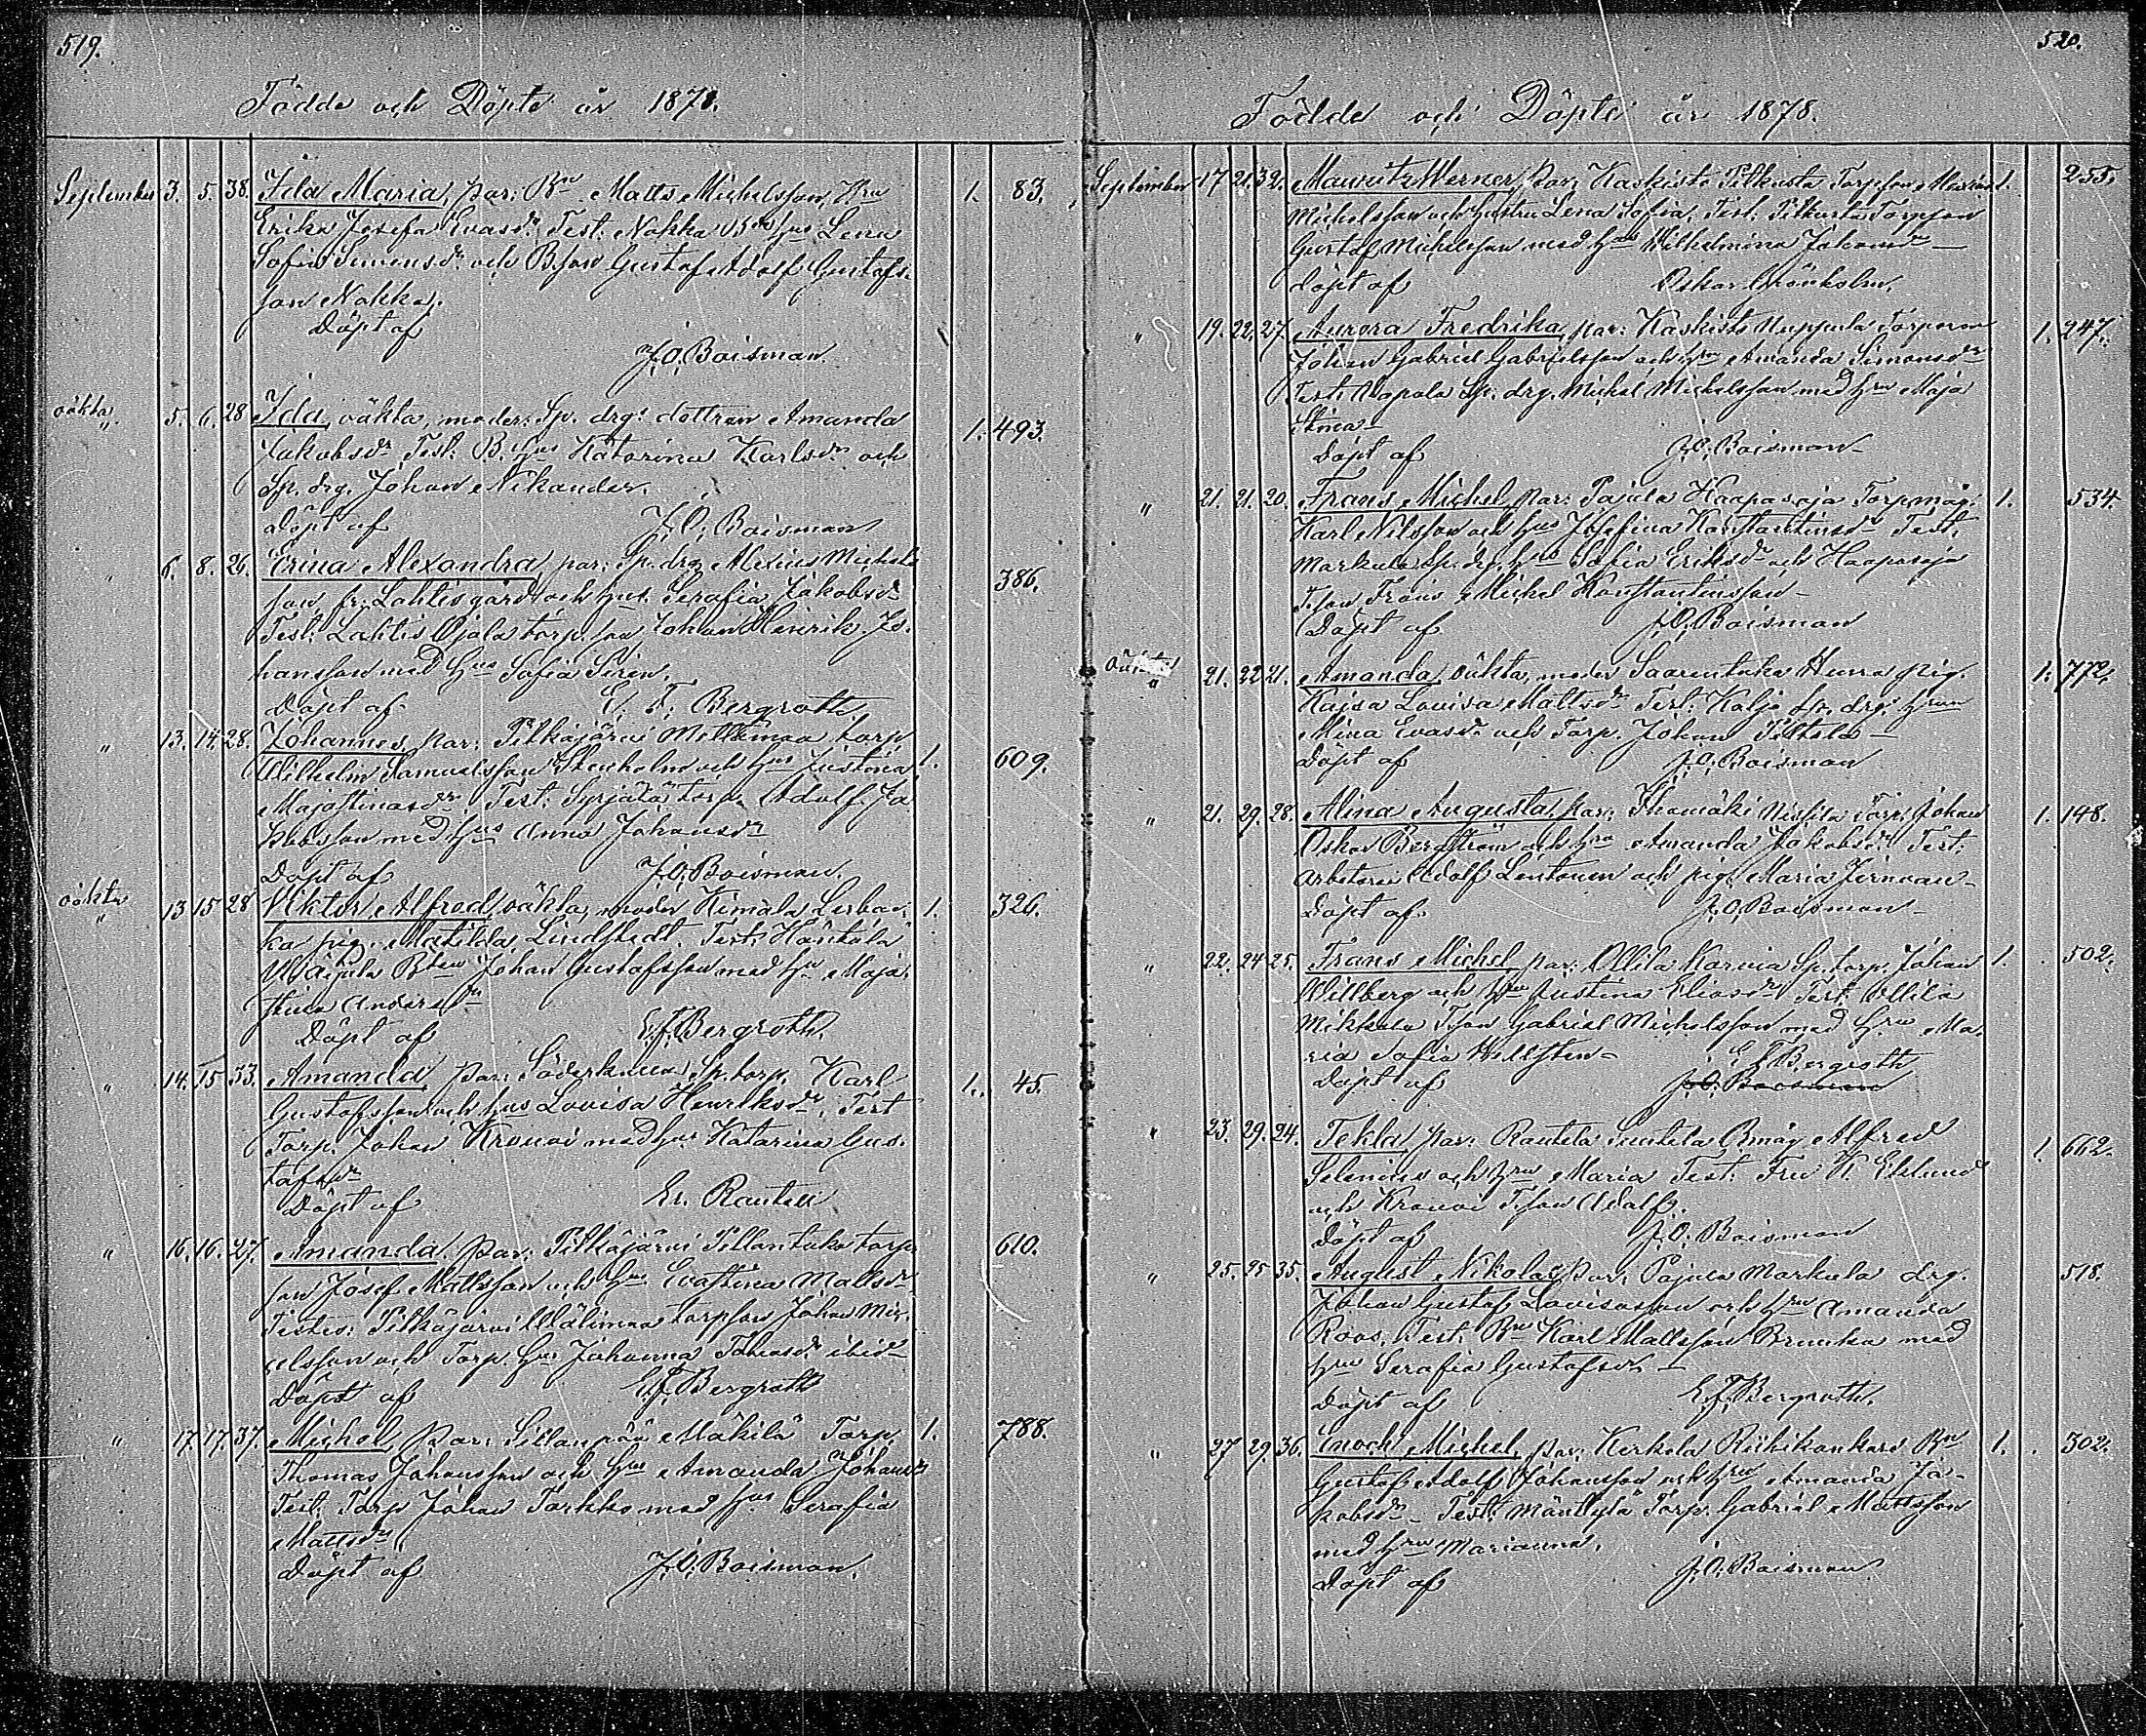 519.
Födde och Döpte år 1878.
September 3. 5. 38. Ida Maria, par: Bn Matts Michelsson, Hru 1. 83.
Erika Josefa Evasdr Test: Nokka Bds hus Lena
Sofia Simonsdr och B.son Gustaf Adolf Gustafs-
son Nokka.
Döpt af
J. O. Boisman.
oäkta
" 5. 6. 28 Ida, oäkta, moder: Sp. drgs dottren Amanda
Jakobsdr Test: B. hus Katarina Karlsdr och 1. 493.
Sp. drg. Johan Nikander.
Döpt af J. O. Boisman
" 6. 8. 26. Erina Alexandra, par: Sp. drg Alexius Michels 386.
son fr. Lahtis gård och hus. Serafia Jakobsdr
Test: Lahtis Ojala torp. son Johan Henrik Jo-
hansson med hus Sofia Siren.
Döpt af E. F. Bergroth.
" 13. 14. 28. Johannes, par: Pitkäjärvi Mettämaa torp.
Wilhelm Samuelsson Stenholm och hus Justina 1. 609.
Majastinasdr Test: Syrjätä torp. Adolf Ja
kobsson med hus Anna Johansdr
Döpt af J. O. Boisman.
oäkta
" 13 15 28 Viktor Alfred, oäkta, moder Kimala 1. 326.
ka pig. Matilda Lindstedt. Test: Häntälä
Johan Gustafsson med hru Maja
stina Andersdr
Döpt af E. F. Bergroth.
" 14. 15 33. Amanda par: Söderkulla Sp. torp. Karl 1. 45.
Gustafsson och hus Lovisa Henriksdr, Test
Torp. Johan Krouvi med hus Katarina Gus-
tafsdr
Döpt af Er. Rautell
" 16. 16. 27. Amanda. par: Pitkäjärvi Pillantaka torp. 610.
son Josef Mattsson och hus Evastina Mattsdr
Testes: Pitkäjärvi Wälimaa torpson Johan Mic-
elsson och Torp. hus Johanna Tomasdr ibid
Döpt af E. F. Bergroth
" 17. 17. 37. Michel, Par: Sillanpää Mäkilä Torp. 1. 788.
Thomas Johansson och hus Amanda Johansdr
Test: Torp Johan Torkko med hus Serafia
Mattsdr
Döpt af J. O. Boisman.
520.
Födde och Döpte år 1878.
September 17 21. 32. Mauritz Werner, par: Kaskisto Pitkusta Torpson 1. 255.
Michelsson och hustru Lena Sofia, Test: Pitkusta Torpson
Gustaf Michelsson med hus Wilhelmina Johansdr
döpt af Oskar Grönholm.
" 19. 22. 27. Aurora Fredrika, par: Kaskisto Nuppula Torparen 1. 247.
Johan Gabriel Gabrielsson och hru Amanda Simonsdr
Test: Sp. drg. Michel Michelsson med hru Maja
Stina
Döpt af J. O. Boisman
" 21. 21. 20. Frans Michel, par: Pajula Haapasoja Torpmåg 1. 534.
Karl Nilsson och hus Josefina Konstantinsdr Test.
Markula Sp. drg. hus Sofia Eriksdr och Haapasoja
T.son Frans Michel Konstantinsson
Döpt af J. O. Boisman
oäkta
" 21. 22 21. Amanda, oäkta, moder Saarentaka Hurra pig. 1. 772.
Kajsa Lovisa Mattsdr Test: Kalja Sp. drg. hrun
Mina Evasdr och Torp. Johan
Döpt af J. O. Boisman
" 21. 29. 28. Alina Augusta, par: Thomäki Nissila Torp. Johan 1. 148.
Oskar Bergström och hru Amanda Jakobsdr Test:
arbetaren Adolf Lentonen och pig. Maria
Döpt af J. O. Boisman
" 22. 24 25. Frans Michel, par: Ollila Karvia Sp. torp. Johan 1. 502.
Willberg och hru Justina Eliasdr Test Ollila
Mikkola Tson Gabriel Michelsson med hru Ma-
ria Sofia Wellsten
Döpt af E F Bergroth
J. O. Boisman
" 23. 29. 24. Tekla, par: Rautela Suntela Bmåg Alfred
Selenius och hru Maria Test: Fru K. Eklund 1. 662.
och Krouvi Tson Adolf.
Döpt af J. O. Boisman
" 25. 25 35. August Nikolai, par: Pajula Markula drg. 518.
Johan Gustaf Lovisasson och hru Amanda
Roos. Test: Bn Karl Mattsson Bruuka med
hru Serafia Gustafsdr
Döpt af E. F. Bergroth.
" 27 29. 36. Enoch Michel, par: Kerkola Riihikankare Bn 1. 302.
Gustaf Adolf Johansson och hru Amanda Ja-
kobsdr Test: Mäntylä Torp. Gabriel Mattsson
med hru Marianna.
Döpt af J. O. Boisman.